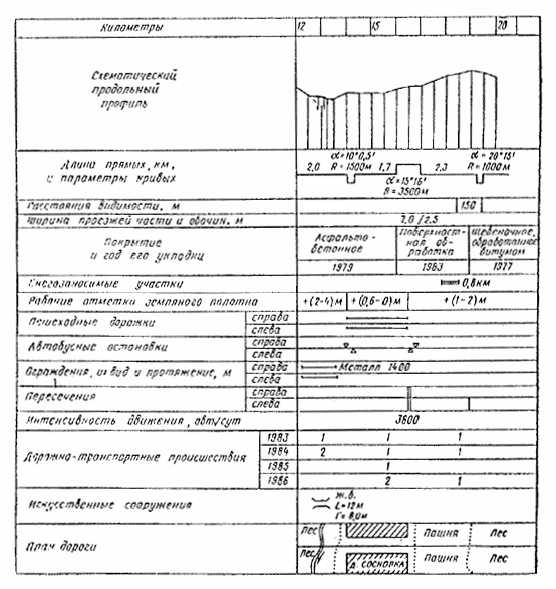 Километры 12 15 20
Схематический
продольный
профиль
Длина прямых, км,
и параметры кривых
α=10°0,5'
2,0 R=1500м 1,7
α=15°16'
R=3500м
2,3
α=20°15'
R=1000м
Расстояния видимости, м 150
Ширина проезжей части и обочин, м 7,0/2,5
Покрытие
и год его укладки
Асфальто-
бетонное
1979
Поверхност-
ная об-
работка
1983
Щебеночное,
обработанное
битумом
1977
Снегозаносимые участки 0,8км
Рабочие отметки земляного полотна +(2-4)м +(0,6-0)м +(1-2)м
Пешеходные дорожки справа
слева
Автобусные остановки справа
слева
Ограждения, их вид и протяжение, м справа Металл 1400
слева
Пересечения справа
слева
Интенсивность движения, авт/сут 3600
Дорожно-транспортные происшествия
1983 1 1 1
1984 2 1 1
1985 1
1986 2 1
Искусственные сооружения
ж.б.
L=12м
Г=8,0м
План дороги
Лес Пашня Лес
Лес д. СОСНОВКА Пашня Лес